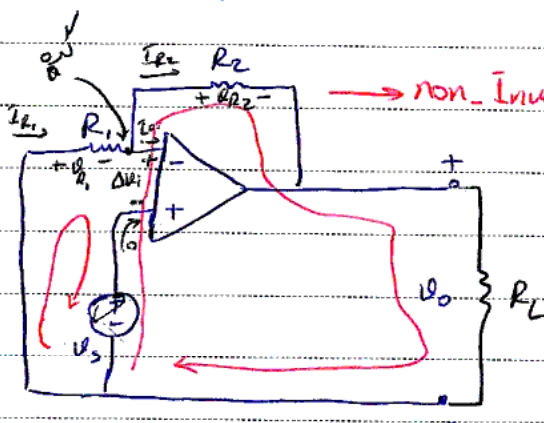 I_R2 R2
+ v_R2 -
non_Inv
I_R1 R1
+ v_R1 -
Δvi
-
+
+
0
+
-
vs
vo
RL